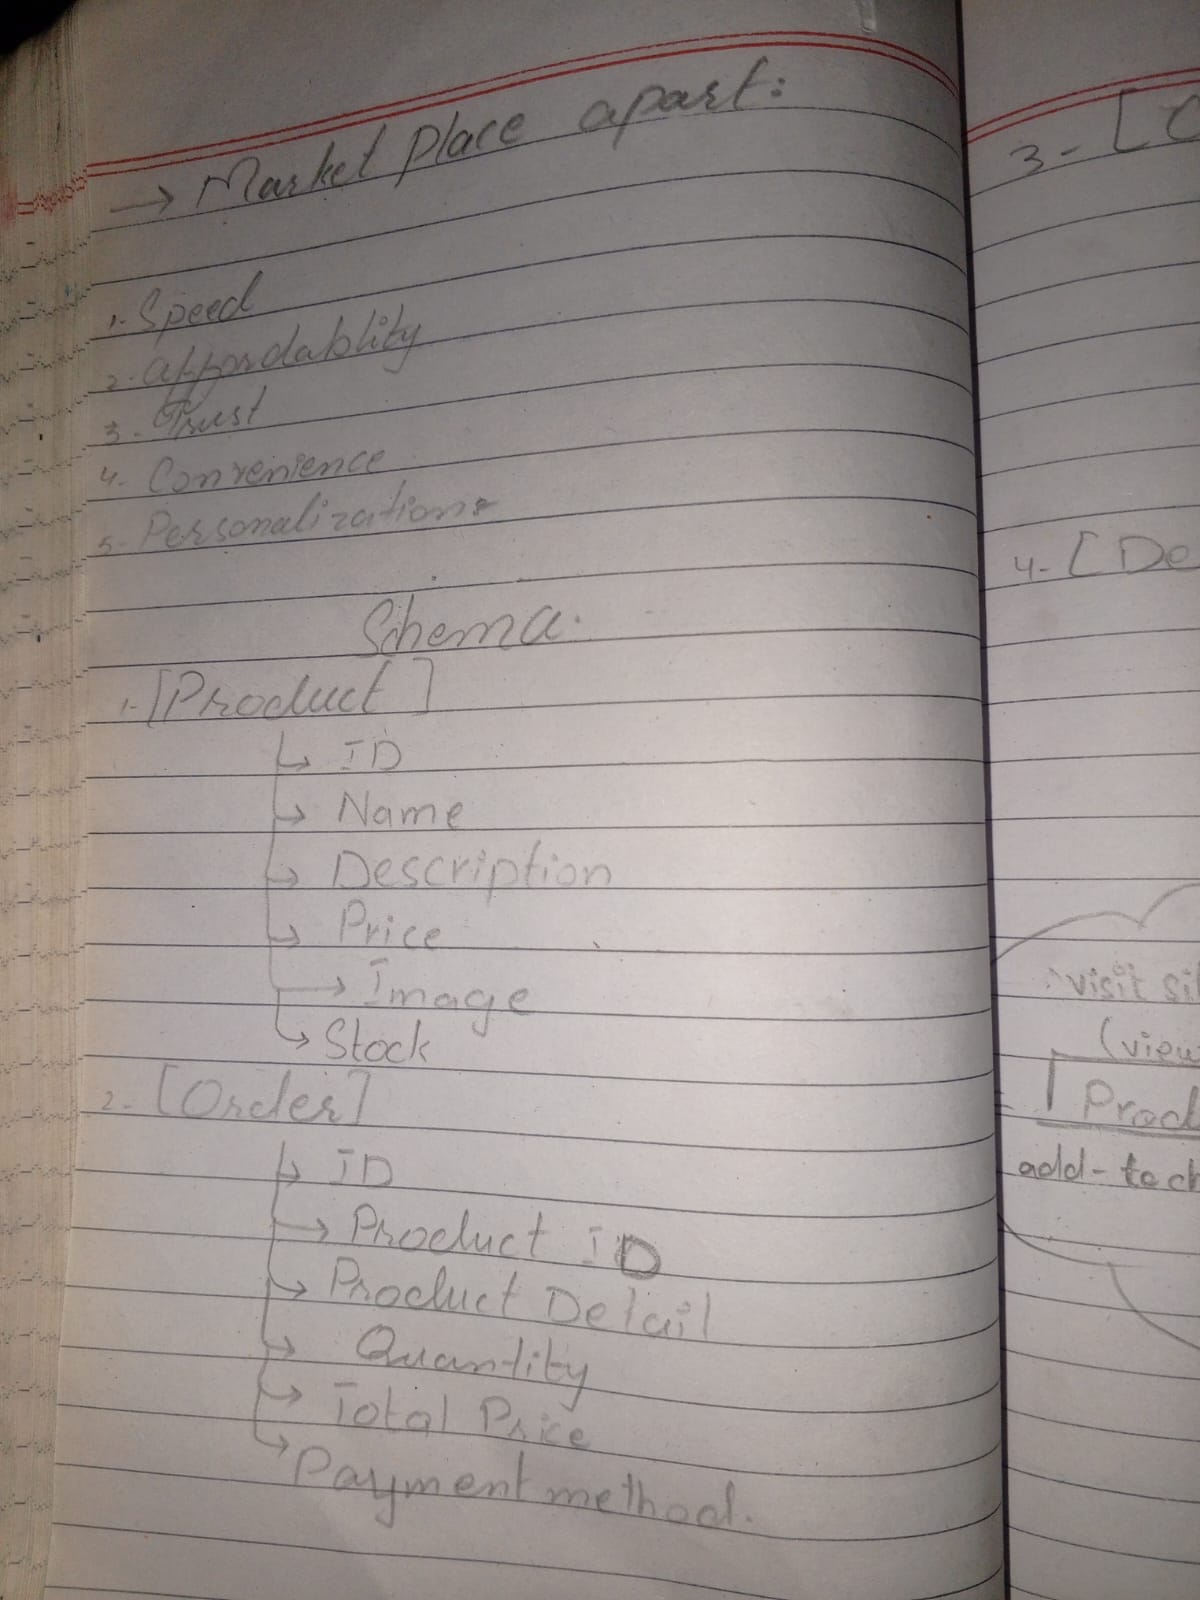 → Market place apart:
1- Speed
2- affordablity
3- Trust
4- Convenience
5- Personalizations
Schema.
1- [Product]
↳ ID
↳ Name
↳ Description
↳ Price
→ Image
↳ Stock
2- [Order]
↳ ID
→ Product ID
↳ Product Detail
↳ Quantity
↳ Total Price
↳ Payment method.
3- [C
4- [De
visit si
(view
Prod
add-to ch